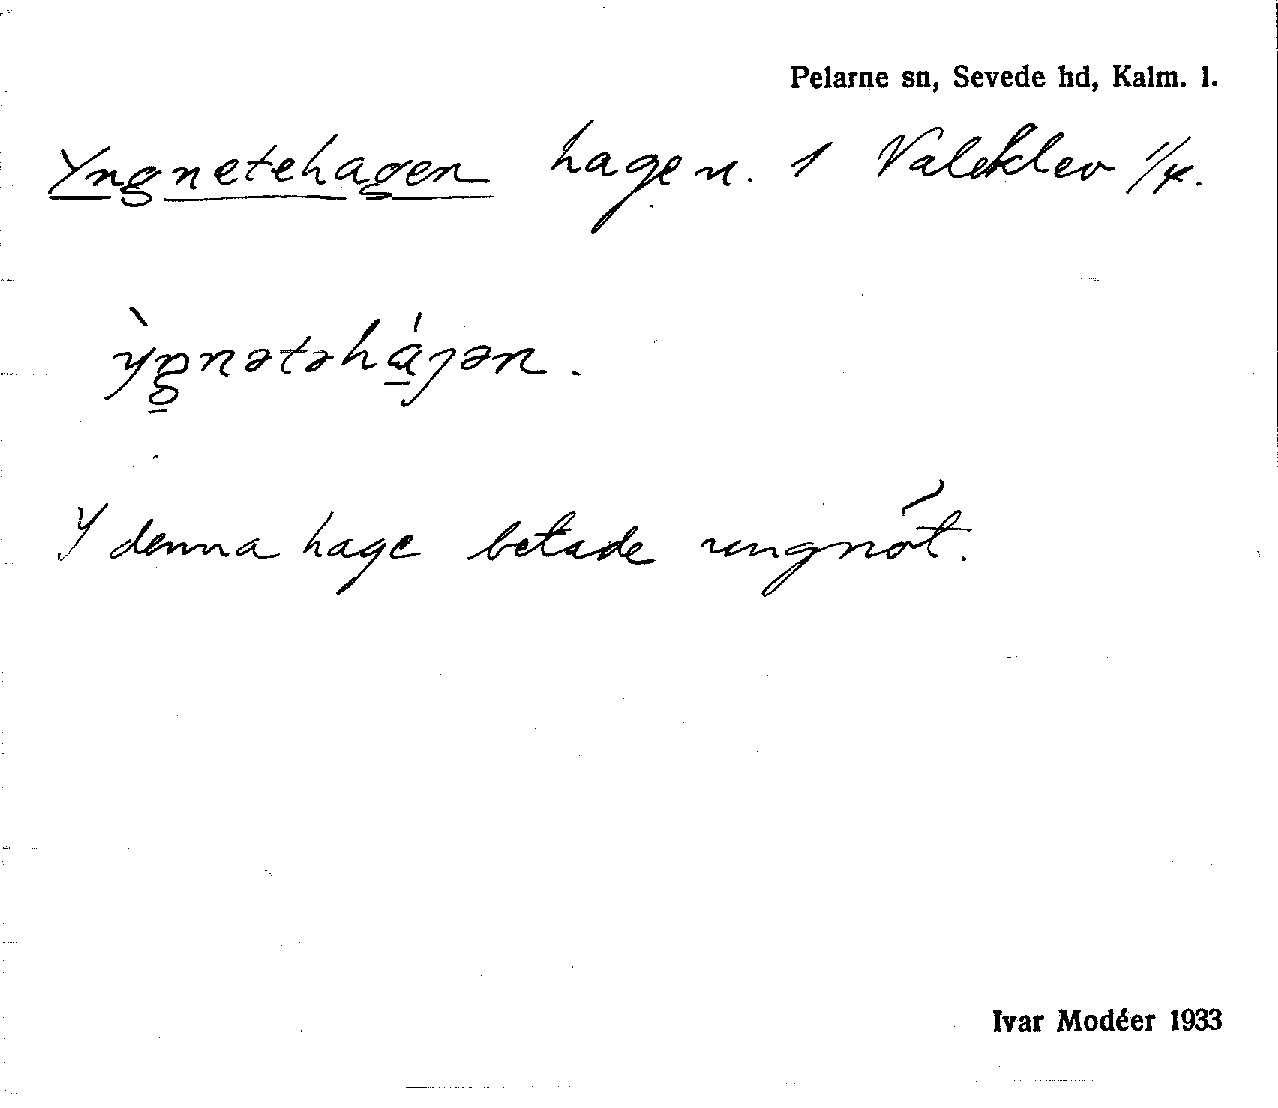 Pelarne sn, Sevede hd, Kalm. l.
Yngnetehagen hagen. 1 Valeklev 1/4.
ỳŋnətəhájən.
I denna hage betade ungnöt.
Ivar Modéer 1933